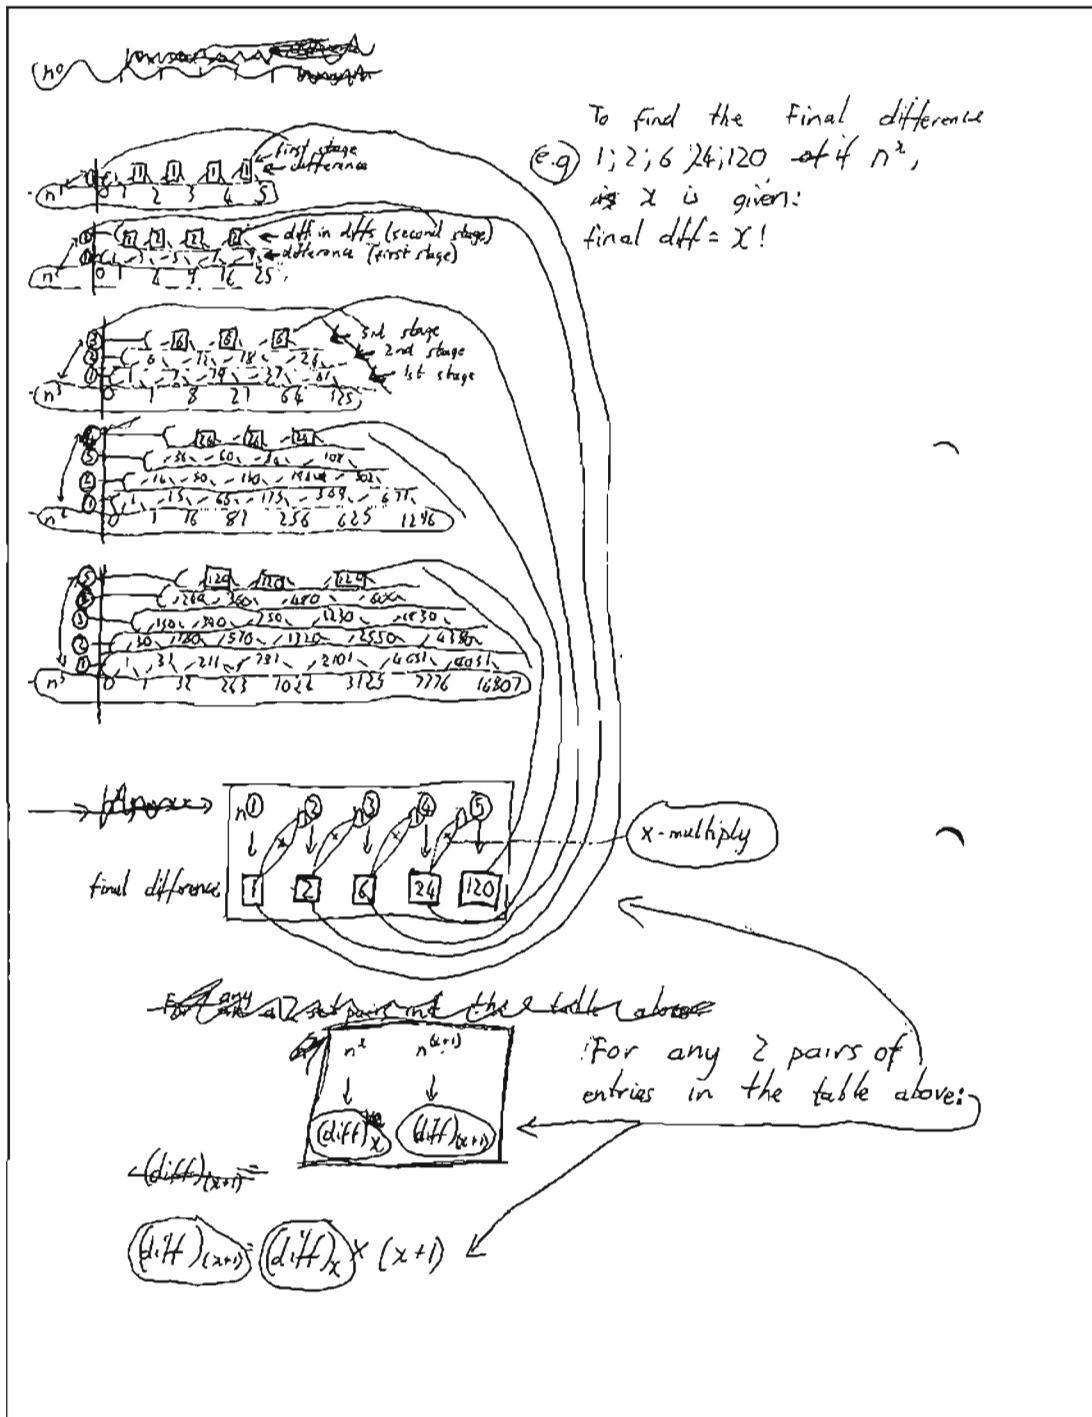 n⁰
To find the final difference
e.g 1; 2; 6 ;24; 120 of if n^x,
x is given:
final diff = x!
first stage
difference
1 1 1 1
n¹ 0 1 2 3 4 5
2 2 2 2
diff in diffs (second stage)
1 3 5 7 9
difference (first stage)
n² 0 1 4 9 16 25
3 6 6 6
3rd stage
2 6 12 18 24
2nd stage
1 1 7 19 37 61
1st stage
n³ 0 1 8 27 64 125
4 24 24 24
3 36 60 84 108
2 14 50 110 194 302
1 1 15 65 175 369 671
n⁴ 0 1 16 81 256 625 1296
5 120 120 120
4 240 360 480 600
3 150 390 750 1230 1830
2 30 180 570 1320 2550 4380
1 1 31 211 781 2101 4651 9031
n⁵ 0 1 32 243 1024 3125 7776 16807
n 1 2 3 4 5
x x x x
x-multiply
final difference 1 2 6 24 120
the table above
n^x n^(x+1)
(diff)x (diff)(x+1)
For any 2 pairs of
entries in the table above:
(diff)(x+1) =
(diff)(x+1) = (diff)x × (x+1)